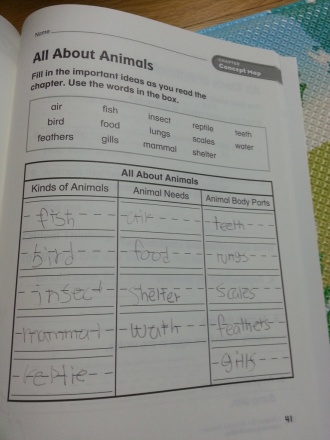 Name
CHAPTER
Concept Map
All About Animals
Fill in the important ideas as you read the
chapter. Use the words in the box.
air fish insect reptile teeth
bird food lungs scales water
feathers gills mammal shelter
All About Animals
Kinds of Animals Animal Needs Animal Body Parts
fish air teeth
bird food lungs
insect shelter scales
mammal feathers
reptile gills
91